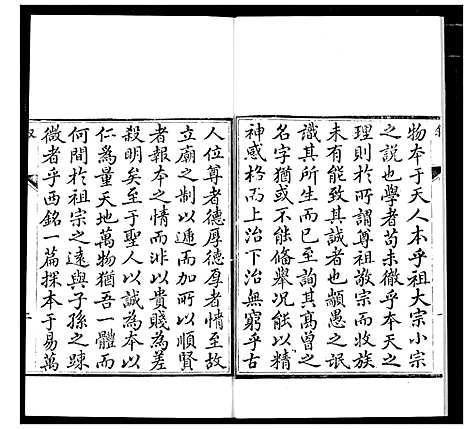 物本于天人本乎祖大宗小宗
之説也學者苟未徹乎本天之
理則於所謂尊祖敬宗而收族
未有能致其誠者也顓愚之氓
識其所生而已至詢其高曾之
名字猶或不能備舉况能以精
神感格而上治下治無窮乎古
人位尊者德厚德厚者情至故
立廟之制以遞而加所以順賢
者報本之情而非以貴賤為差
殺明矣至于聖人以誠為本以
仁為量天地萬物猶吾一體而
何間於祖宗之遠與子孫之踈
微者乎西銘一篇探本于易萬
二